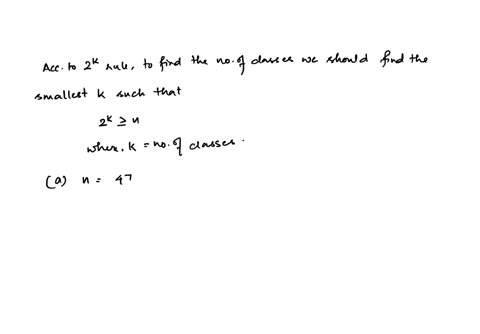 Acc. to 2^k rule, to find the no. of classes we should find the
smallest k such that
2^k ≥ n
where, k = no. of classes.
(a) n = 47